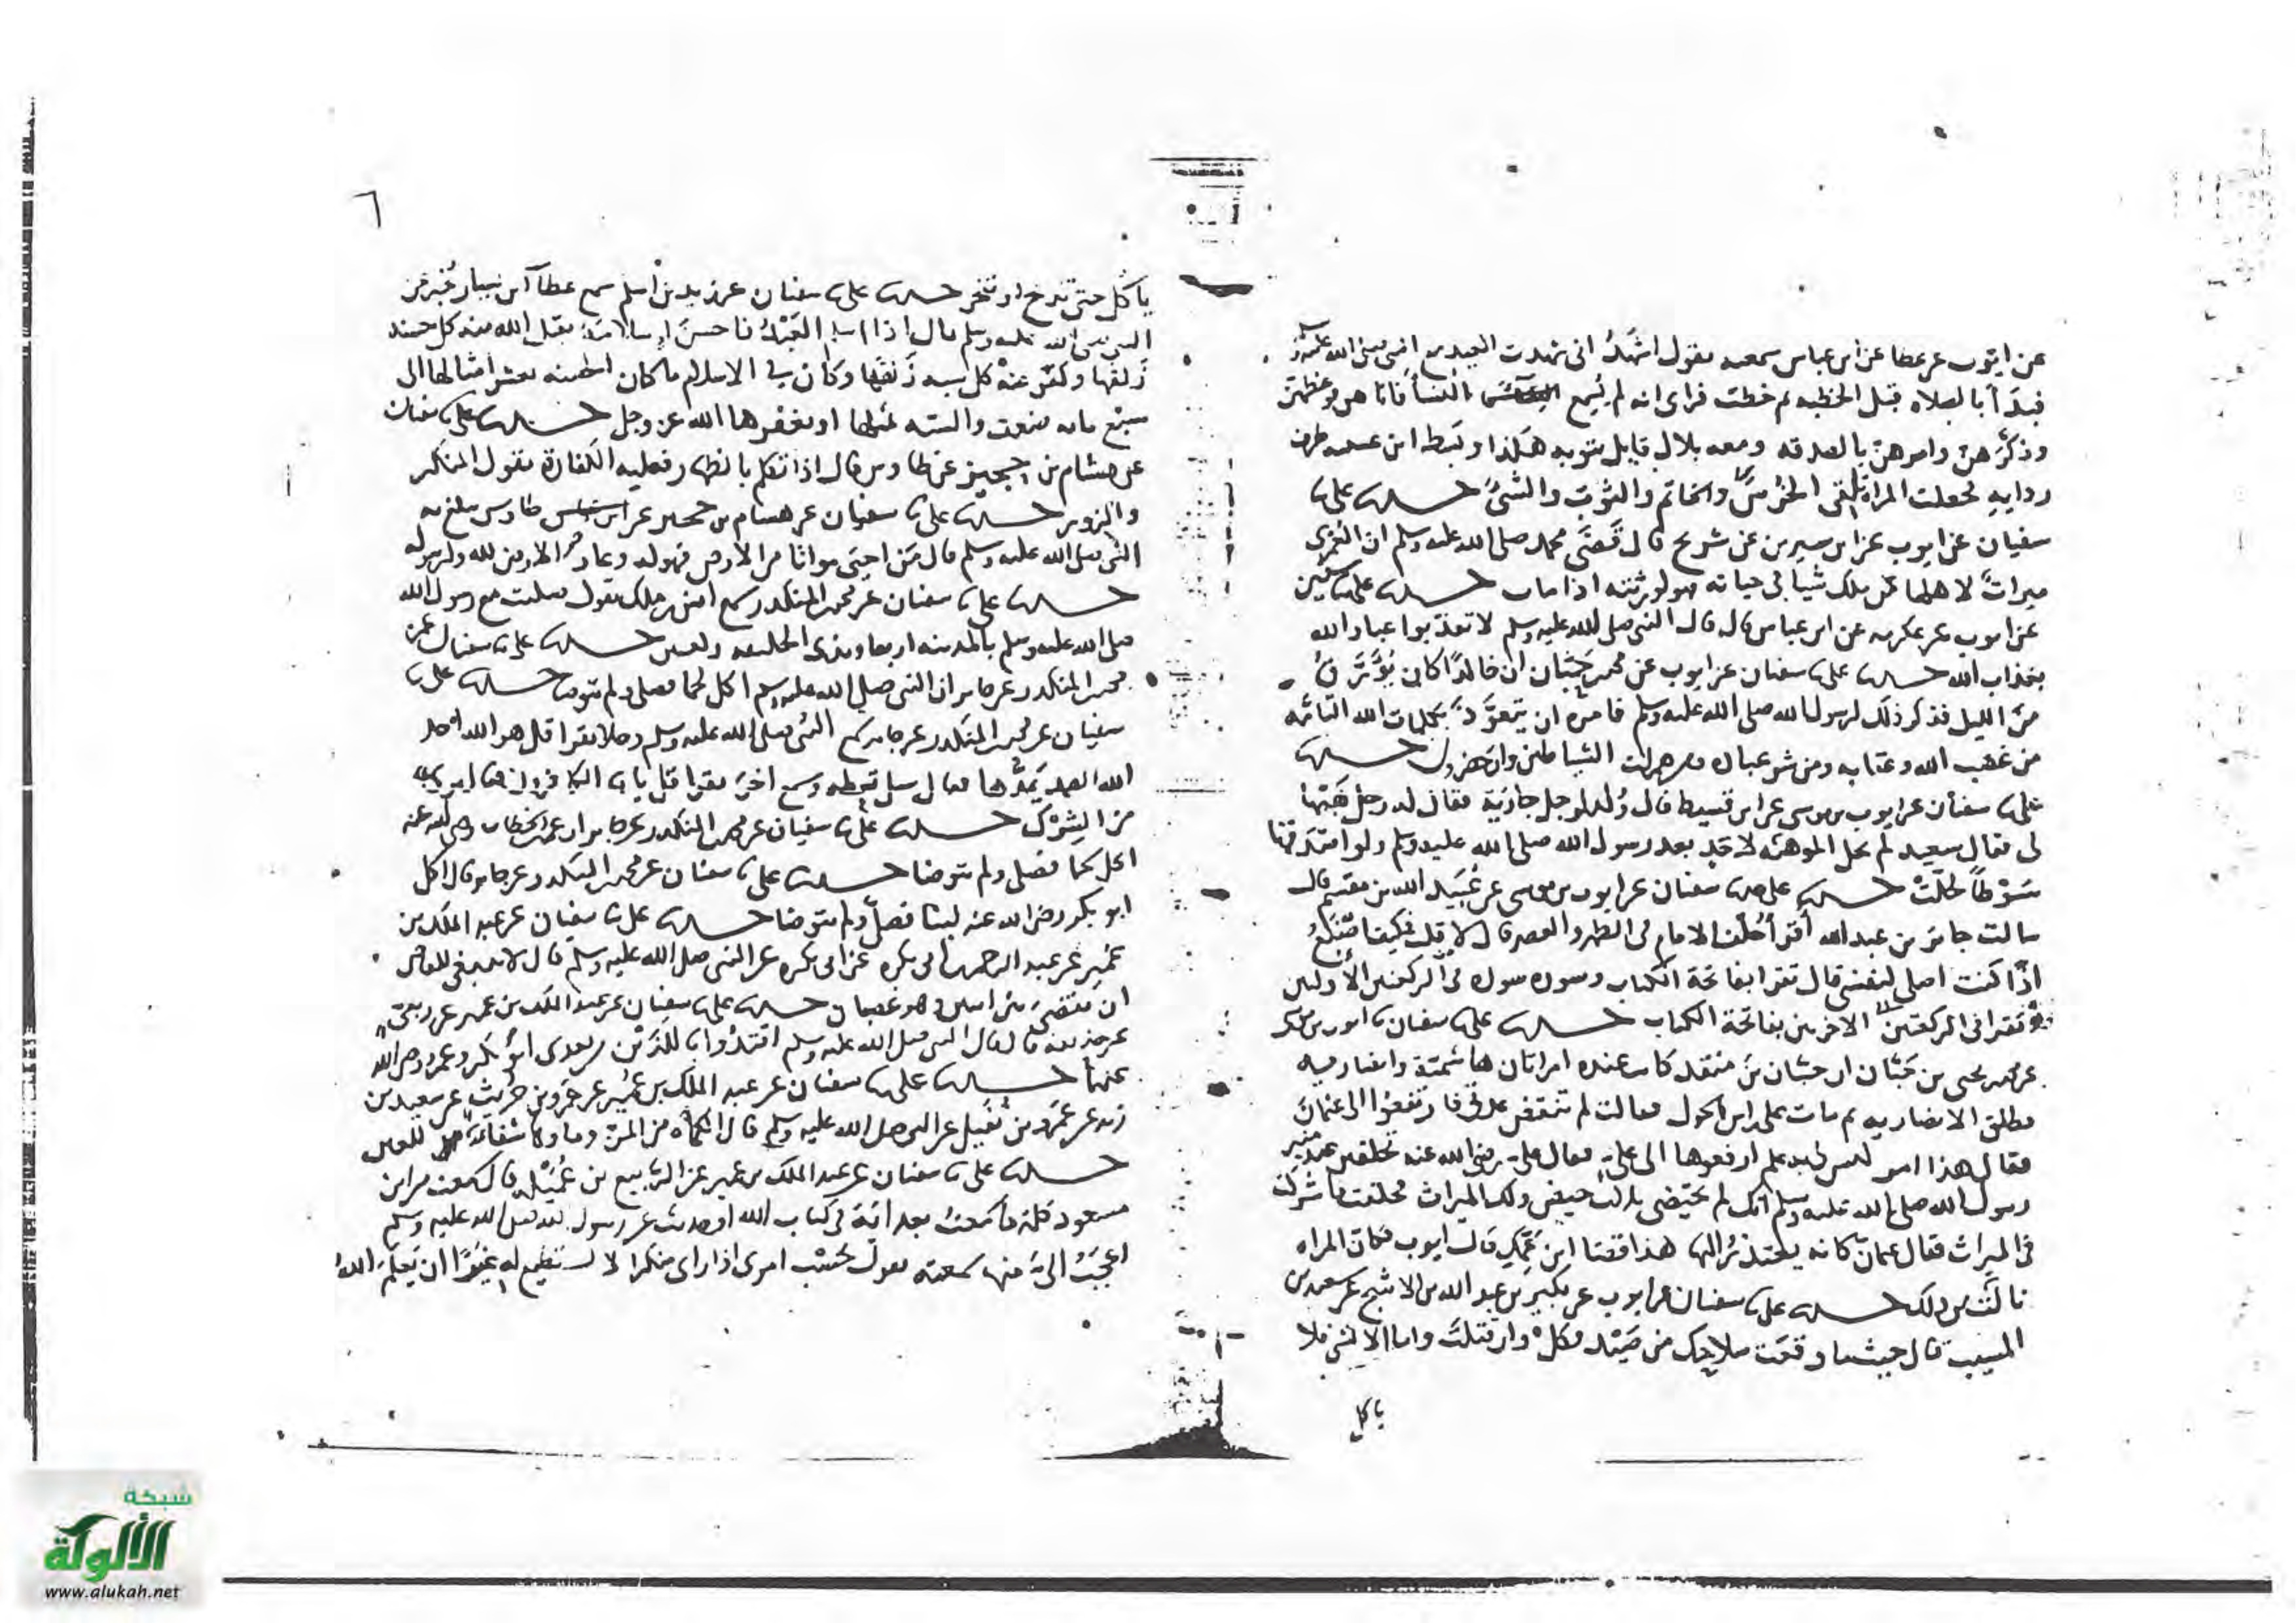 عن ايوب عن عطا عن ابن عباس سمعه يقول اشهد انى شهدت العيد مع النبى صلى الله عليه وسلم
فبدأ بالصلاه قبل الخطبه ثم خطب فراى انه لم يُسمع النسأ فاتاهن فوعظهن
وذكرهن وامرهن بالصدقه ومعه بلال قايل بثوبه هكذا وبسط ابن عيينه طرف
ردايه فجعلت المراة تلقى الخرص والخاتم والثوب والشئ حدثنا على نا
سفيان عن ايوب عن ابن سيرين عن شريح قال قضى محمد صلى الله عليه وسلم ان العُمرى
ميراث لاهلها من ملك شيا فى حياته فهو لورثته اذا مات حدثنا على نا سفين
عن ايوب عن عكرمه عن ابن عباس قال قال النبى صلى الله عليه وسلم لا تعذبوا عباد الله
بعذاب الله حدثنا على نا سفيان عن ايوب عن محمد بن حبان ان خالدا كان يُؤرق
من الليل فذكر ذلك لرسول الله صلى الله عليه وسلم فامره ان يتعوذ بكلمات الله التامه
من غضب الله وعقابه ومن شر عباده ومن همزات الشياطين وان يحضرون حدثنا
على نا سفيان عن ايوب بن موسى عن ابن قسيط قال وُلد لرجل جارية فقال له رجل هبها
لى فقال سعيد لم تحل الموهبه لاحد بعد رسول الله صلى الله عليه وسلم ولو اصدقها
سَوْطاً لحلّت حدثنا على نا سفيان عن ايوب بن موسى عن عُبَيد الله بن مقسم قال
سالت جابر بن عبد الله أقرأ خلف الامام فى الظهر والعصر قال لا قلت فكيف تصنع
اذا كنت اصلى لنفسى قال تقرا بفاتحة الكتاب وسوره سوره فى الركعتين الأوليين
وتقرا فى الركعتين الاخريين بفاتحة الكتاب حدثنا على نا سفيان نا ايوب بن موسى
عن محمد بن يحيى بن حَبّان ان حبان بن منقذ كانت عنده امراتان هاشمية وانصاريه
فطلق الانصاريه ثم مات على راس الحول فقالت لم تنقض عدتى فارتفعوا الى عثمان
فقال هذا امر ليس لى به علم ارفعوها الى على فقال على رضى الله عنه تحلفين عند منبر
رسول الله صلى الله عليه وسلم انك لم تحيضى ثلاث حيض ولك الميراث فحلفت فاشركت
فى الميراث فقال عثمان كانه يعتذر اليها هذا قضا ابن عمك قال ايوب فماتت المراه
المسيب قال حيث ما وقعت سلاحك من صيد فكل وان قتلت واما الانسى فلا
ياكل
٦
ياكل حتى تذبح او تنحر حدثنا على نا سفيان عن زيد بن اسلم سمع عطآ ابن يسار يُخبر عن
النبى صلى الله عليه وسلم قال اذا اسلم العبد فاحسن اسلامه يقبل الله منه كل حسنه
زلفها وكفر عنه كل سيه زلفها وكان فى الاسلام ما كان الحسنه بعشر امثالها الى
سبع مايه ضعف والسيه بمثلها او يغفرها الله عز وجل حدثنا على نا سفيان
عن هشام بن حجير عن طاوس قال اذا تكلم بالظهار فعليه الكفارة يقول المنكر
والزور حدثنا على نا سفيان عن هشام بن حجير عن طاوس يبلغ به
النبى صلى الله عليه وسلم قال من احيى مواتا من الارض فهو له وعادى الارض لله ولرسوله
حدثنا على نا سفيان عن محمد بن المنكدر سمع انس بن ملك يقول صليت مع رسول الله
صلى الله عليه وسلم بالمدينه اربعا وبذى الحليفه ركعتين حدثنا على نا سفيان عن
محمد بن المنكدر عن جابر ان النبى صلى الله عليه وسلم اكل لحما فصلى ولم يتوضا حدثنا على نا
سفيان عن محمد بن المنكدر عن جابر سمع النبى صلى الله عليه وسلم رجلا يقرا قل هو الله احد
الله الصمد يَمُدّها فقال سل تعطه وسمع اخر يقرا قل يا ايها الكافرون فقال برى
من الشرك حدثنا على نا سفيان عن محمد بن المنكدر عن جابر ان عمر بن الخطاب رضى الله عنه
اكل لحما فصلى ولم يتوضا حدثنا على نا سفيان عن محمد بن المنكدر عن جابر قال اكل
ابو بكر رضى الله عنه لبنا فصلى ولم يتوضا حدثنا على نا سفيان عن عبد الملك بن
عُمير عن عبد الرحمن بن ابى بكره عن ابى بكره عن النبى صلى الله عليه وسلم قال لا ينبغى للقاضى
ان يقضى بين اثنين وهو غضبان حدثنا على نا سفيان عن عبد الملك بن عمير عن ربعى
عن حذيفه قال قال النبى صلى الله عليه وسلم اقتدُوا باللذين من بعدى ابو بكر وعمر رضى الله
عنهما حدثنا على نا سفيان عن عبد الملك بن عمير عن عمرو بن حريث عن سعيد بن
زيد بن عمرو بن نفيل عن النبى صلى الله عليه وسلم قال الكمأه من المنّ وماوها شفا للعين
حدثنا على نا سفيان عن عبد الملك بن عمير عن الربيع بن عُمَيْلة قال سمعت من ابن
مسعود كلمة ما سمعت بعد اية فى كتاب الله او حديث عن رسول الله صلى الله عليه وسلم
اعجَبُ الىّ منها سمعته يقول بحسب امرى اذا راى منكرا لا يستطيع له غِيَرًا ان يَعلَم الله
شبكة
الألوكة
www.alukah.net